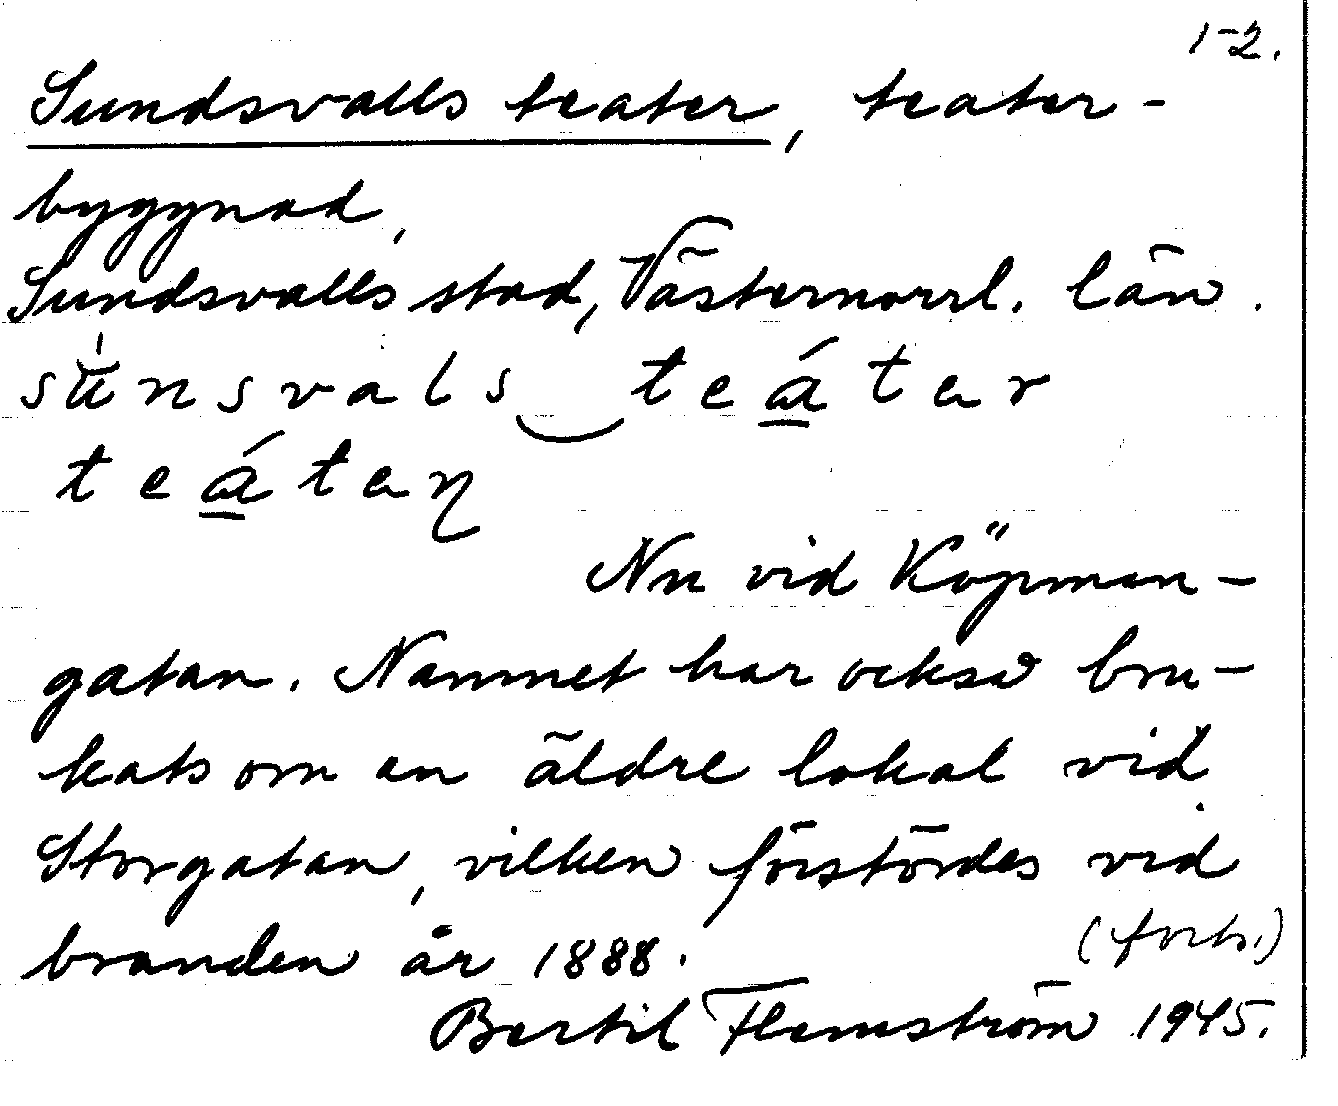 1-2.
Sundsvalls teater, teater-
byggnad,
Sundsvalls stad, Västernorrl. län.
sùnsvals‿teáter
teáteɳ
Nu vid Köpman-
gatan. Namnet har också bru-
kats om en äldre lokal vid
Storgatan, vilken förstördes vid
branden år 1888. (forts.)
Bertil Flemström 1945.